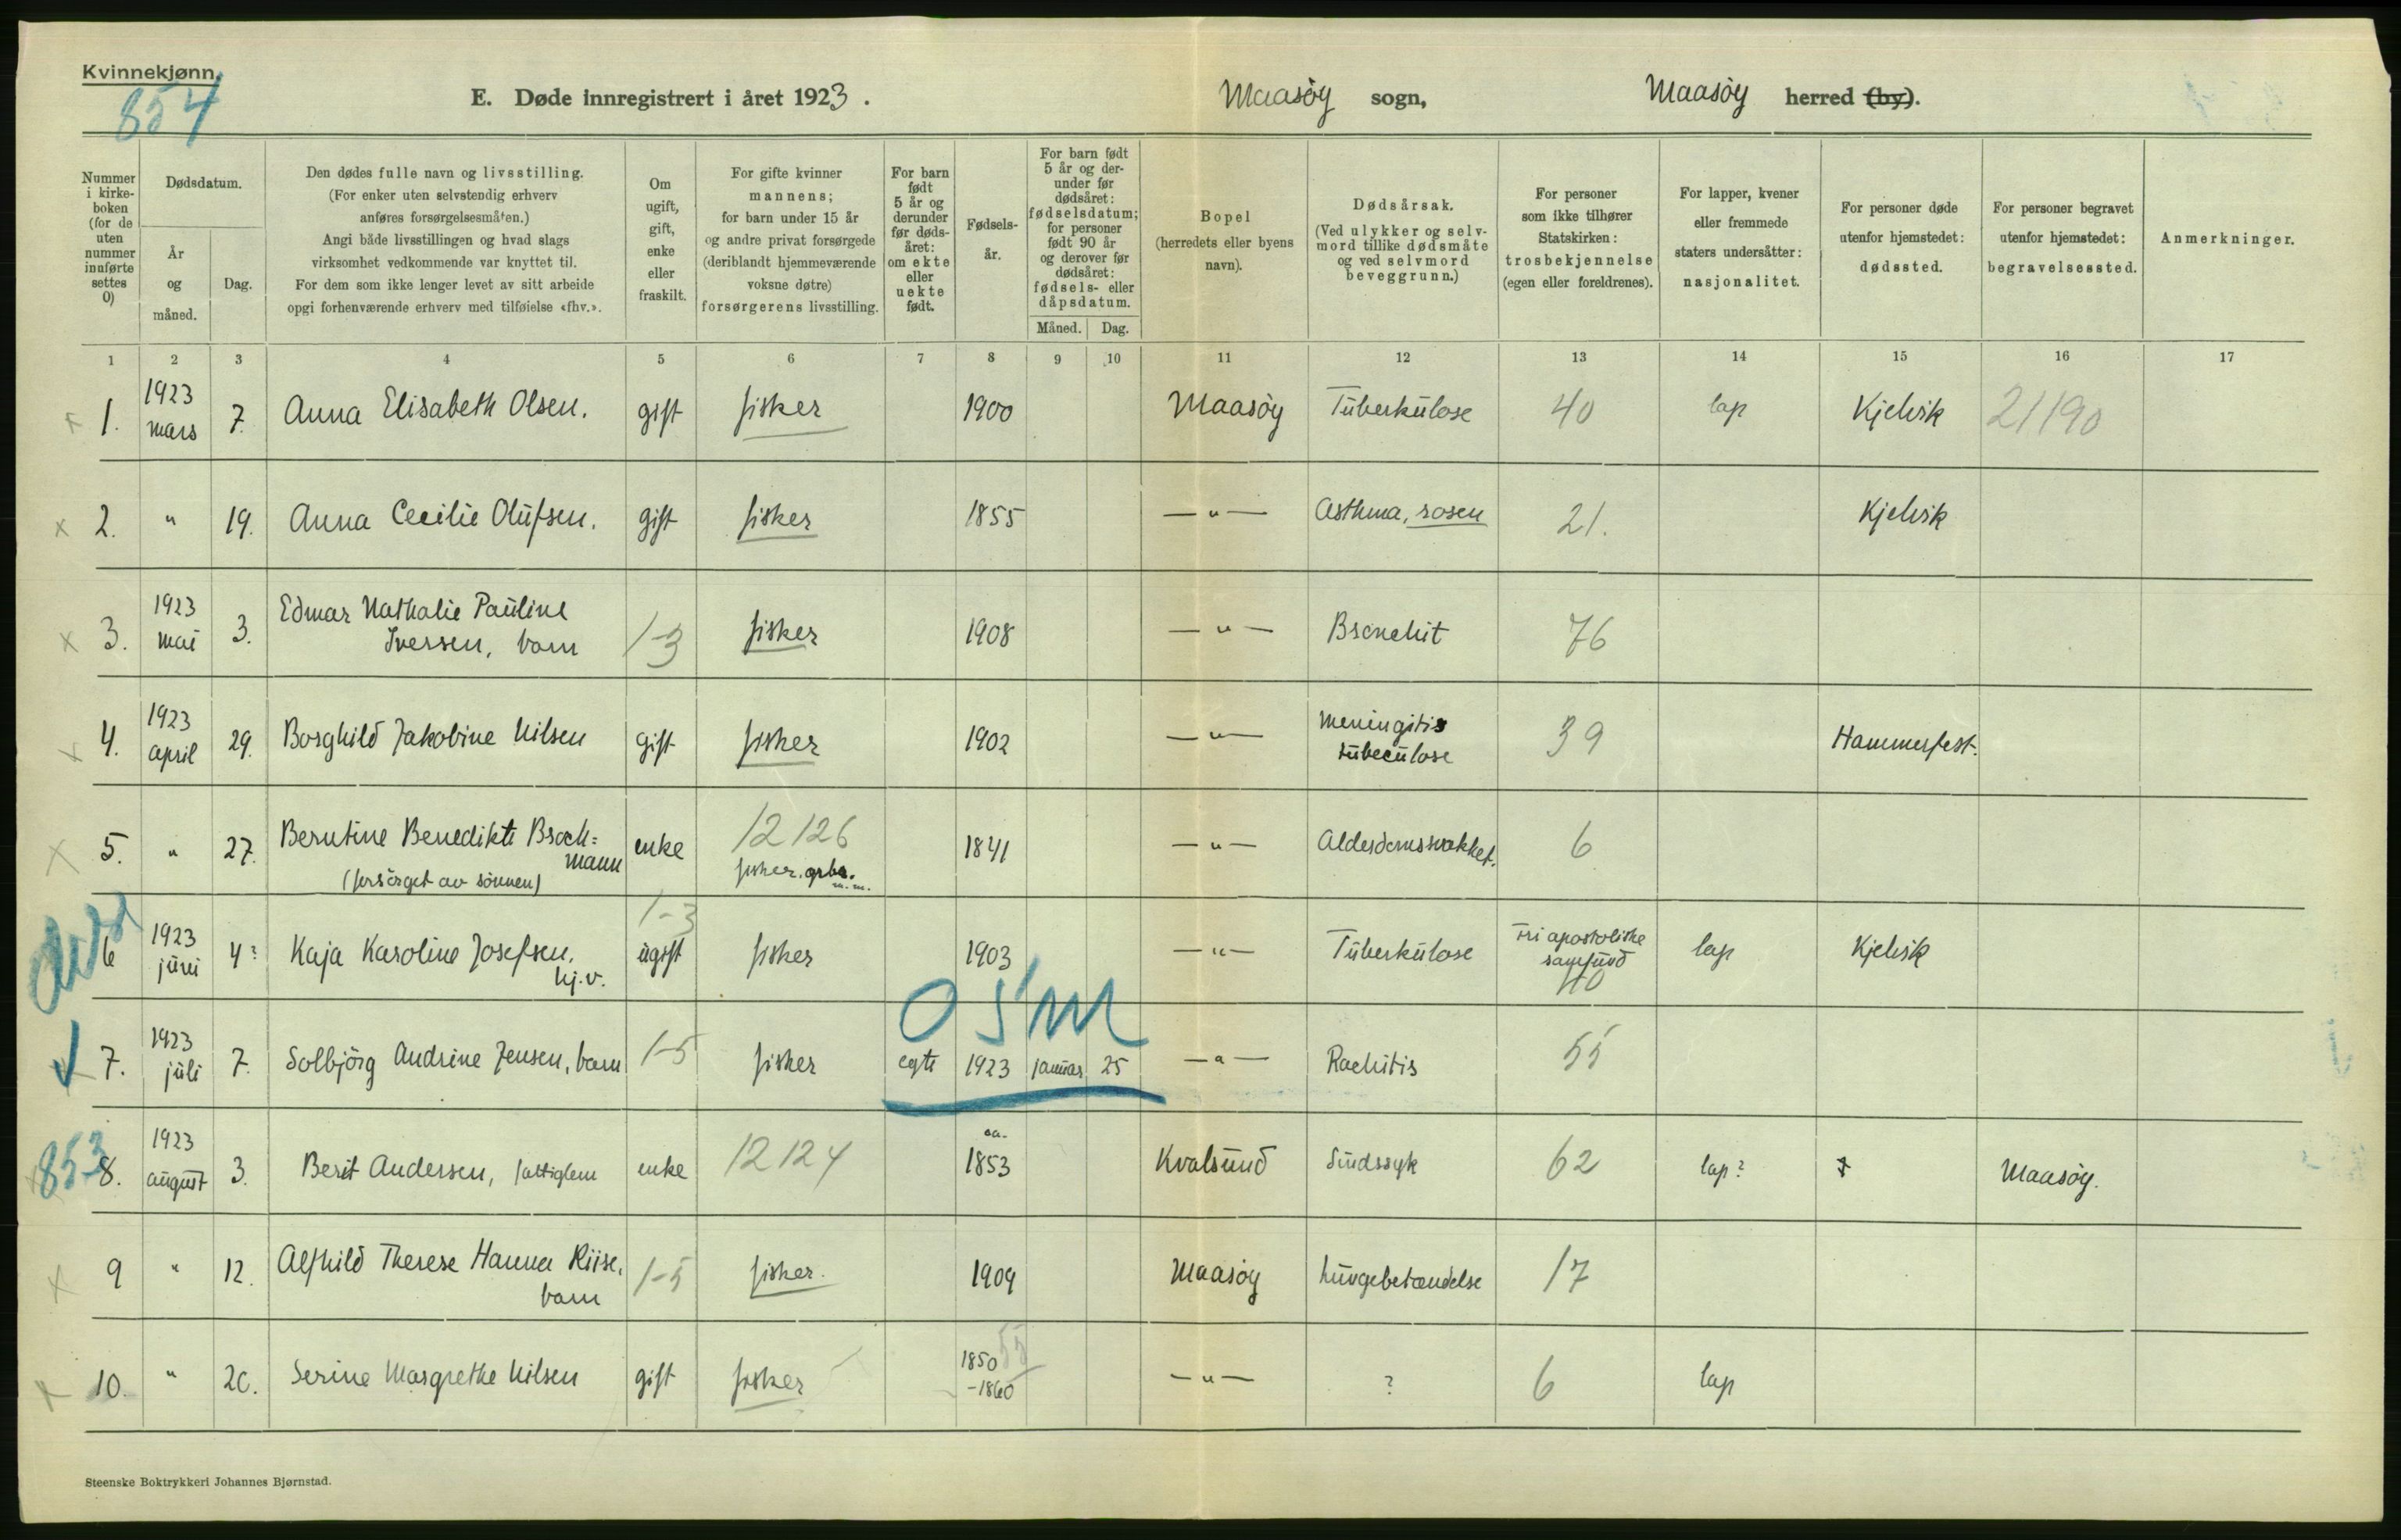 Kvinnekjønn.
854
E. Døde innregistrert i året 1923. Maasöy sogn, Maasöy herred (by).
Nummer i kirkeboken (for de uten nummer innførte settes 0)
Dødsdatum.
År og måned.
Dag.
Den dødes fulle navn og livsstilling.
(For enker uten selvstendig erhverv
anføres forsørgelsesmåten.)
Angi både livsstillingen og hvad slags
virksomhet vedkommende var knyttet til.
For dem som ikke lenger levet av sitt arbeide
opgi forhenværende erhverv med tilføielse «fhv.».
Om ugift, gift, enke eller fraskilt.
For gifte kvinner
mannens;
for barn under 15 år
og andre privat forsørgede
(deriblandt hjemmeværende
voksne døtre)
forsørgerens livsstilling.
For barn født 5 år og derunder før dødsåret: om ekte eller uekte født.
Fødselsår.
For barn født 5 år og derunder før dødsåret: fødselsdatum; for personer født 90 år og derover før dødsåret: fødsels- eller dåpsdatum.
Måned. Dag.
Bopel
(herredets eller byens
navn).
Dødsårsak.
(Ved ulykker og selvmord tillike dødsmåte
og ved selvmord
beveggrunn.)
For personer
som ikke tilhører
Statskirken:
trosbekjennelse
(egen eller foreldrenes).
For lapper, kvener
eller fremmede
staters undersåtter:
nasjonalitet.
For personer døde
utenfor hjemstedet:
dødssted.
For personer begravet
utenfor hjemstedet:
begravelsessted.
Anmerkninger.
1 2 3 4 5 6 7 8 9 10 11 12 13 14 15 16 17
x 1. 1923 mars 7. Anna Elisabeth Olsen. gift fisker 1900 Maasöy Tüberkülose 40 lap Kjelvik 21190
x 2. " 19. Anna Cecilie Olüfsen. gift fisker 1855 — " — Asthma, rosen 21. Kjelvik
x 3. 1923 mai 3. Edmar Nathalie Paüline
Iversen, barn 1-3 fisker 1908 — " — Bronchit 76
x 4. 1923 april 29. Borghild Jakobine Nilsen gift fisker 1902 — " — meningitis
tübecülose 39 Hammerfest.
x 5. " 27. Berntine Benedikte Broch=
mann
(forsörget av sönnen) enke 12126
fisker, grbr. m.m. 1841 — " — Alderdomssvakhet. 6
6 1923 jüni 4? Kaja Karoline Josefsen.
hj.v. 1-3
ügift fisker 1903 — " — Tüberkülose Fri apostoliske
samfünd
40 lap Kjelvik
0 5 m
7. 1923 jüli 7. Solbjörg Andrine Jensen, barn 1-5 fisker egte 1923 janüar 25 — " — Rachitis 55
853 8. 1923 aügüst 3. Berit Andersen, fattiglem enke 12124 ca.
1853 Kvalsünd Sindssyk 62 lap? Maasöy.
x 9 " 12. Alfhild Therese Hanna Riise.
barn 1-5 fisker. 1909 Maasöy lüngebetændelse 17
x 10. " 20. Serine Margrethe Nilsen gift fisker 1850 55
-1860 — " — ? 6 lap
Steenske Boktrykkeri Johannes Bjørnstad.